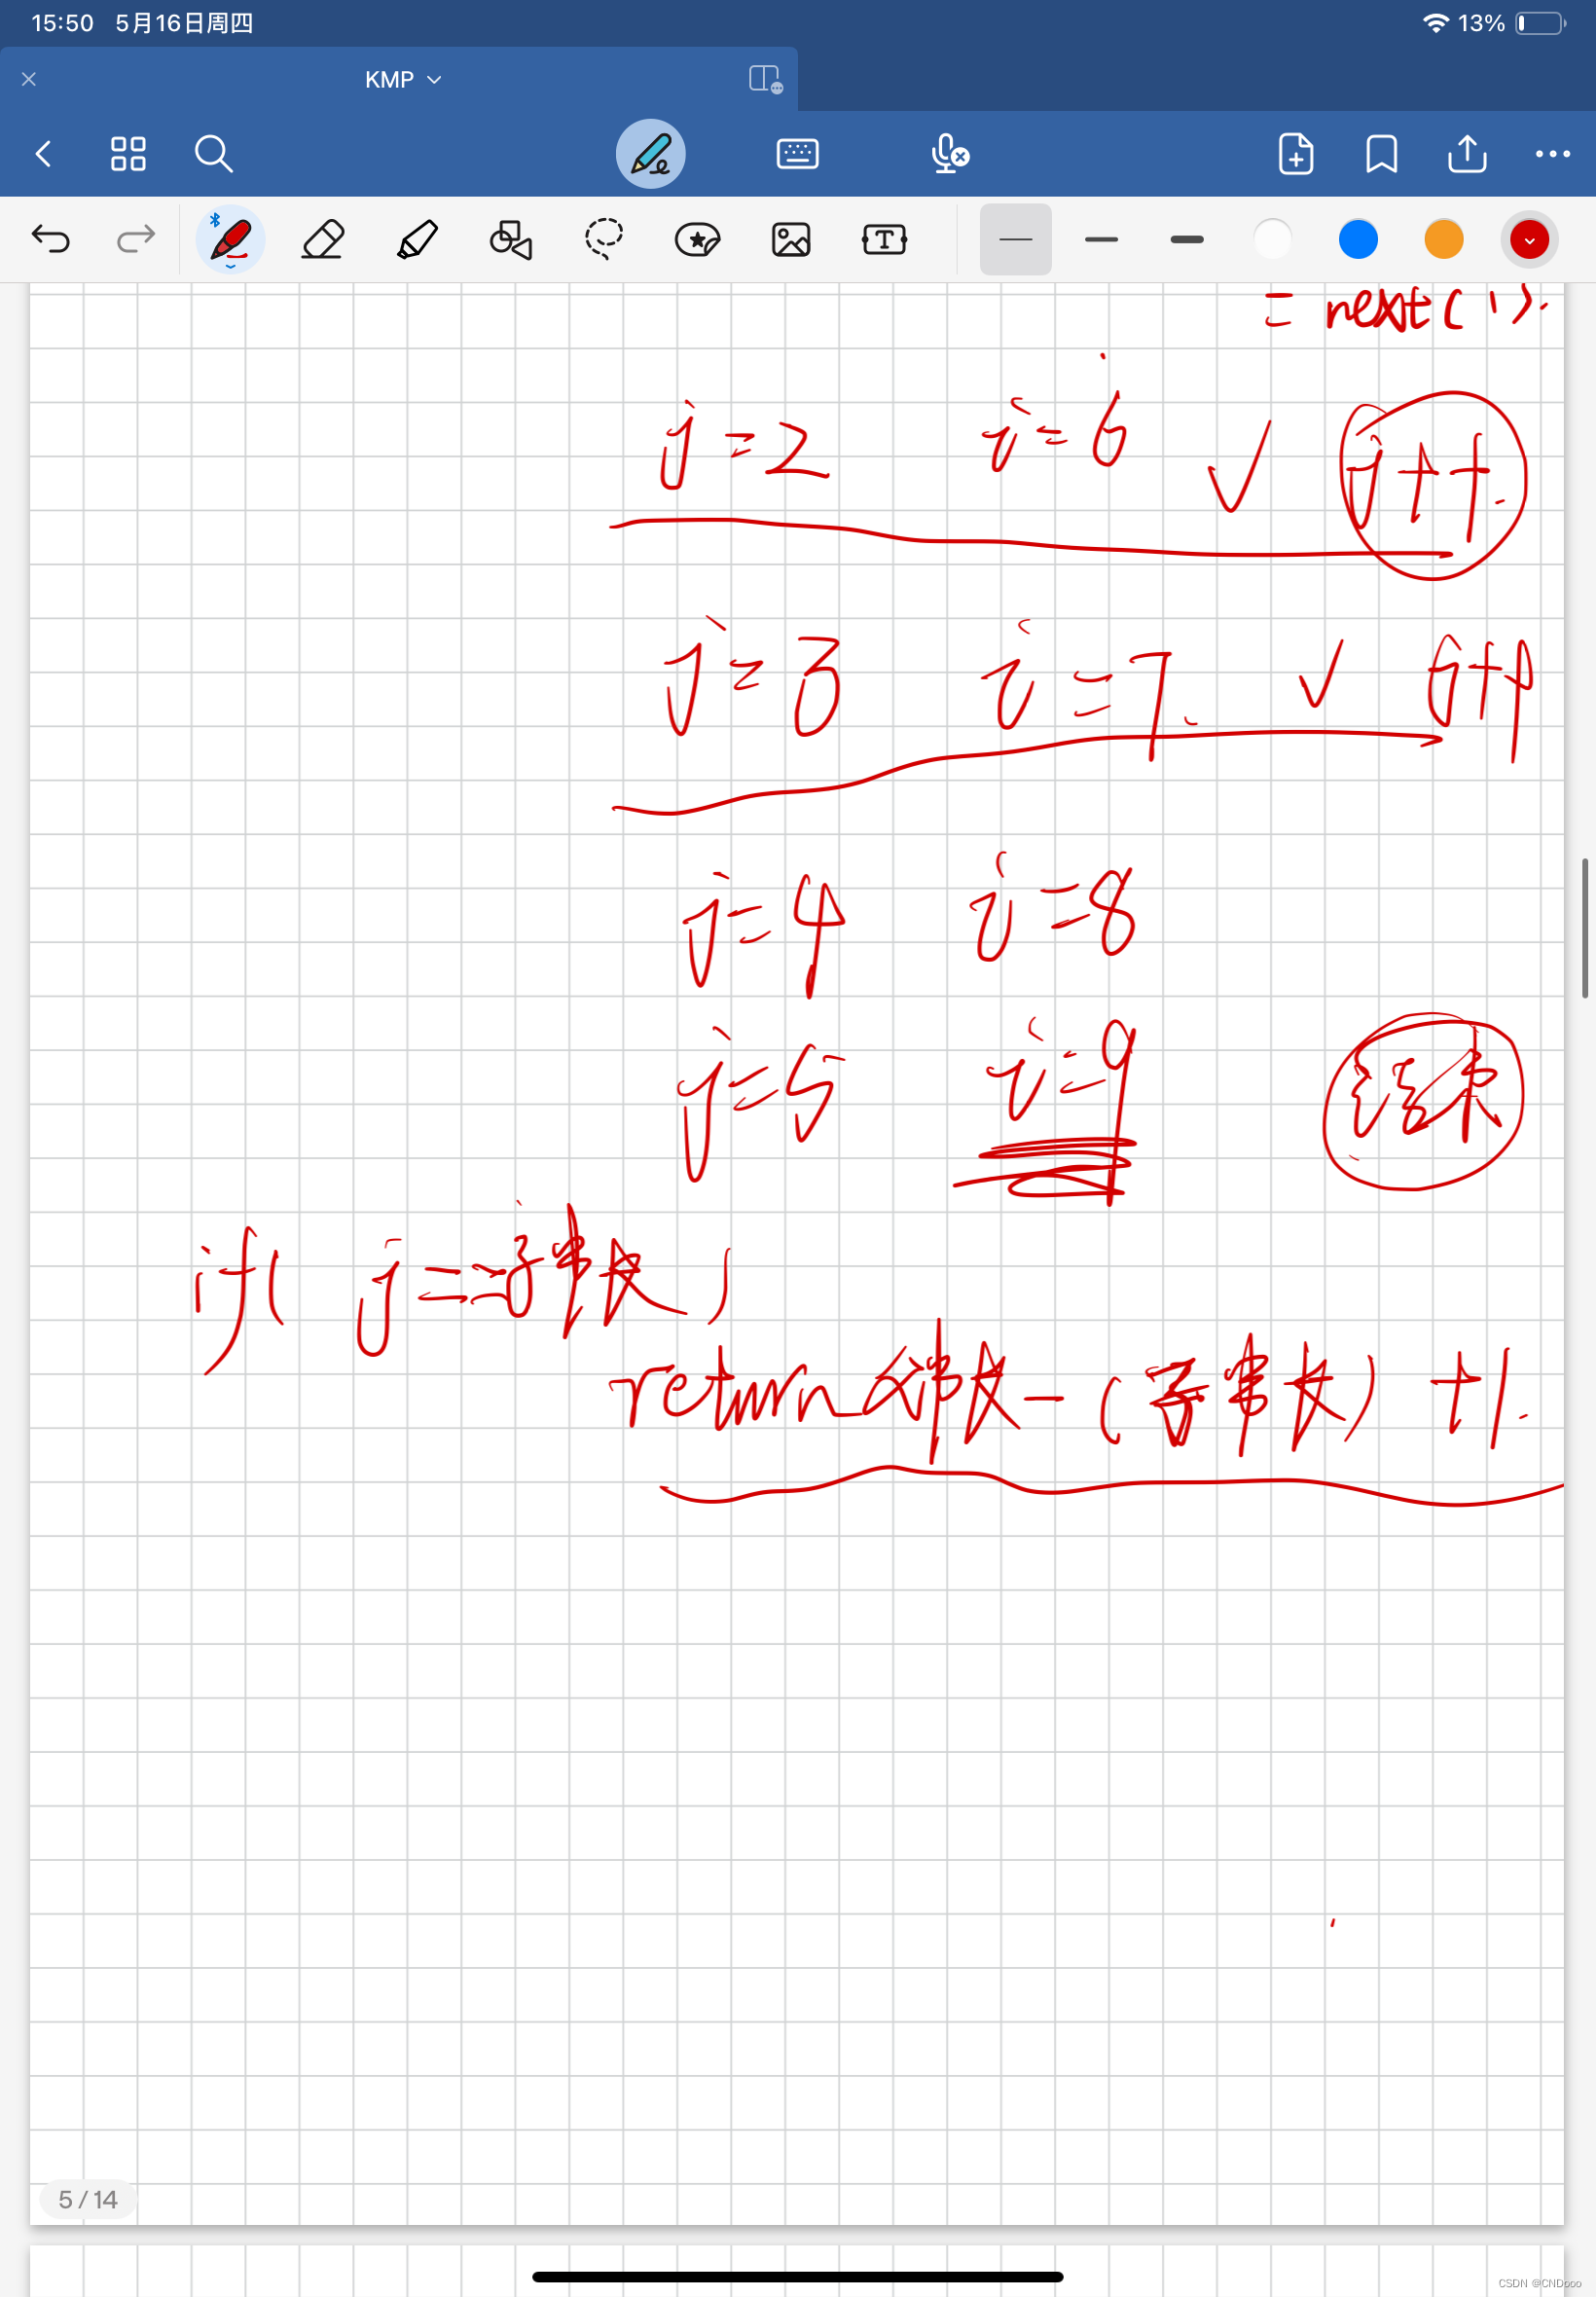 15:50 5月16日周四 13%
KMP
= next(1).
j=2 i=6 √ j++.
j=3 i=7. √ j++
j=4 i=8
j=5 i=9 结束
if( j==子串长)
return 父串长-(子串长)+1.
5 / 14
CSDN @CNDooo